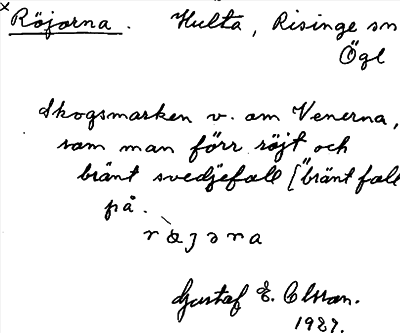 × Röjorna. Hulta, Risinge sn
Ögl
Skogsmarken v. om Venerna,
som man förr röjt och
bränt svedjefall ["bränt fall
på.
Gustaf E. Olsson.
1927.